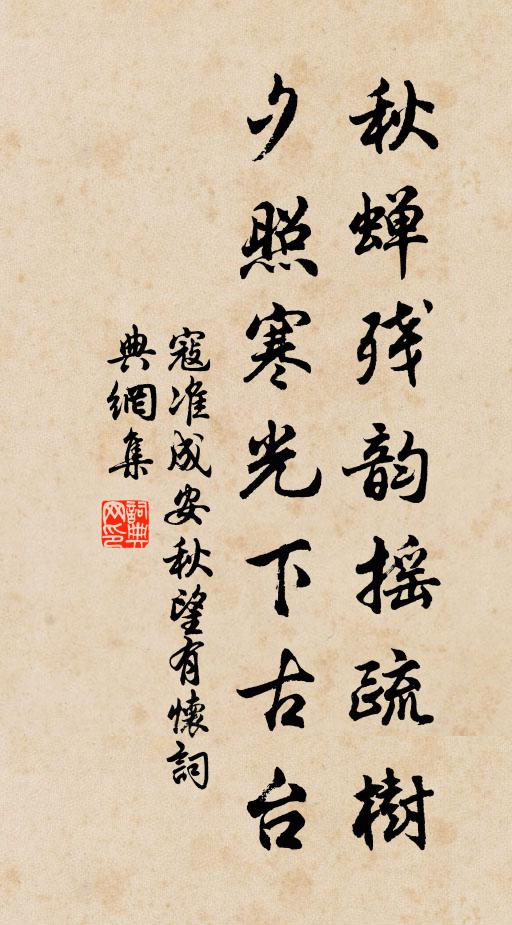 秋蝉残韵摇疏樹
夕照寒光下古台
寇准成安秋望有懷詞
典網集
詞典网印